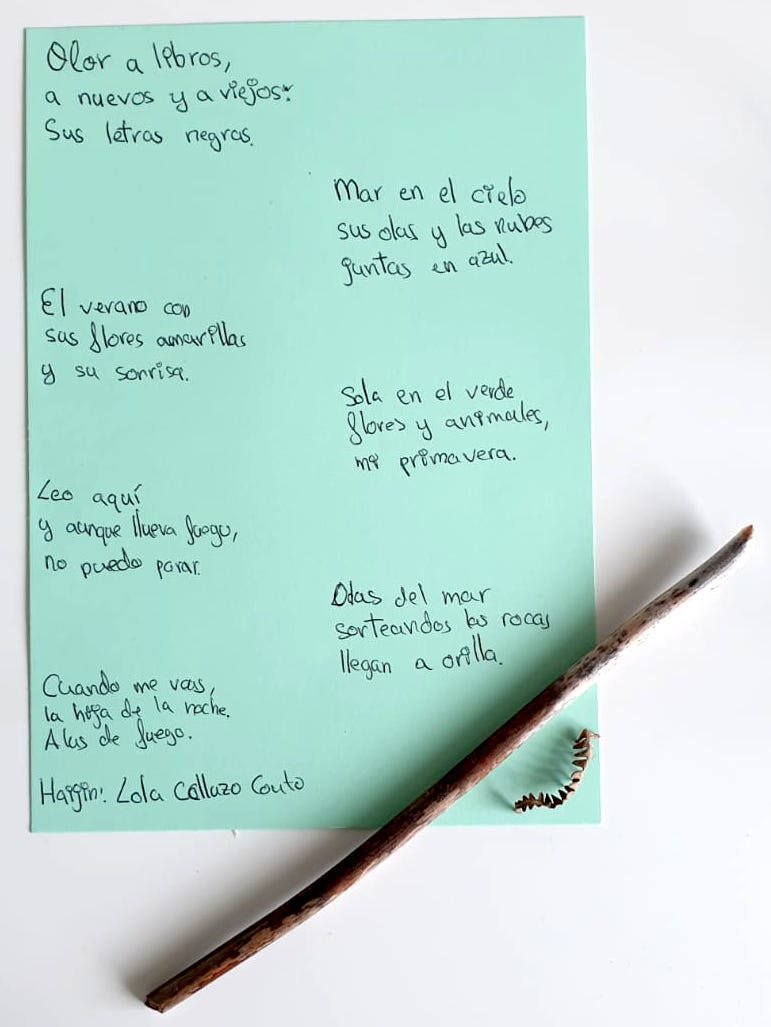 Olor a libros,
a nuevos y a viejos:
Sus letras negras.
Mar en el cielo
sus olas y las nubes
juntas en azul.
El verano con
sus flores amarillas
y su sonrisa.
Sola en el verde
flores y animales,
mi primavera.
Leo aquí
y aunque llueva fuego,
no puedo parar.
Olas del mar
sorteandos las rocas
llegan a orilla.
Cuando me vas,
la hoja de la noche.
Alas de fuego.
Haijin: Lola Collazo Couto